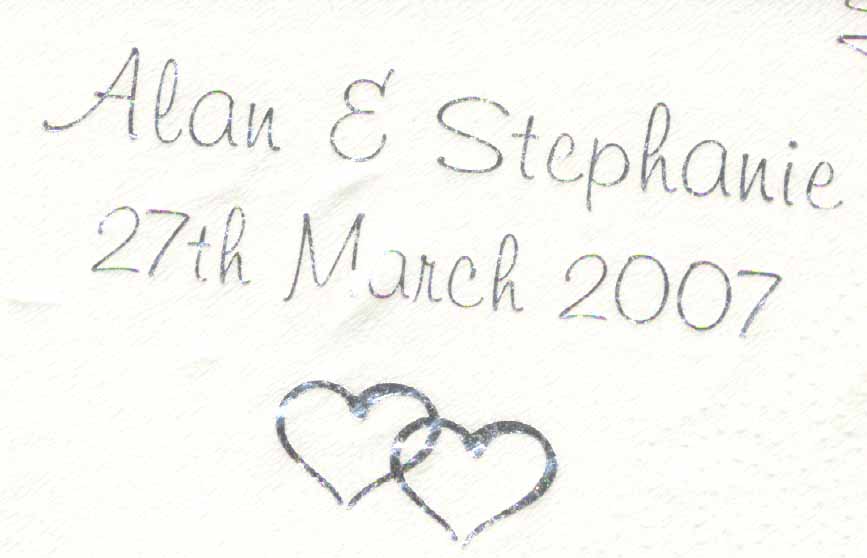 Alan & Stephanie
27th March 2007